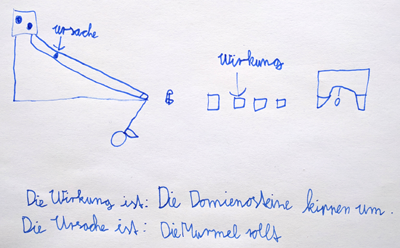 Ursache
Wirkung
Die Wirkung ist: Die Domienosteine kippen um.
Die Ursache ist: Die Murmel rollt